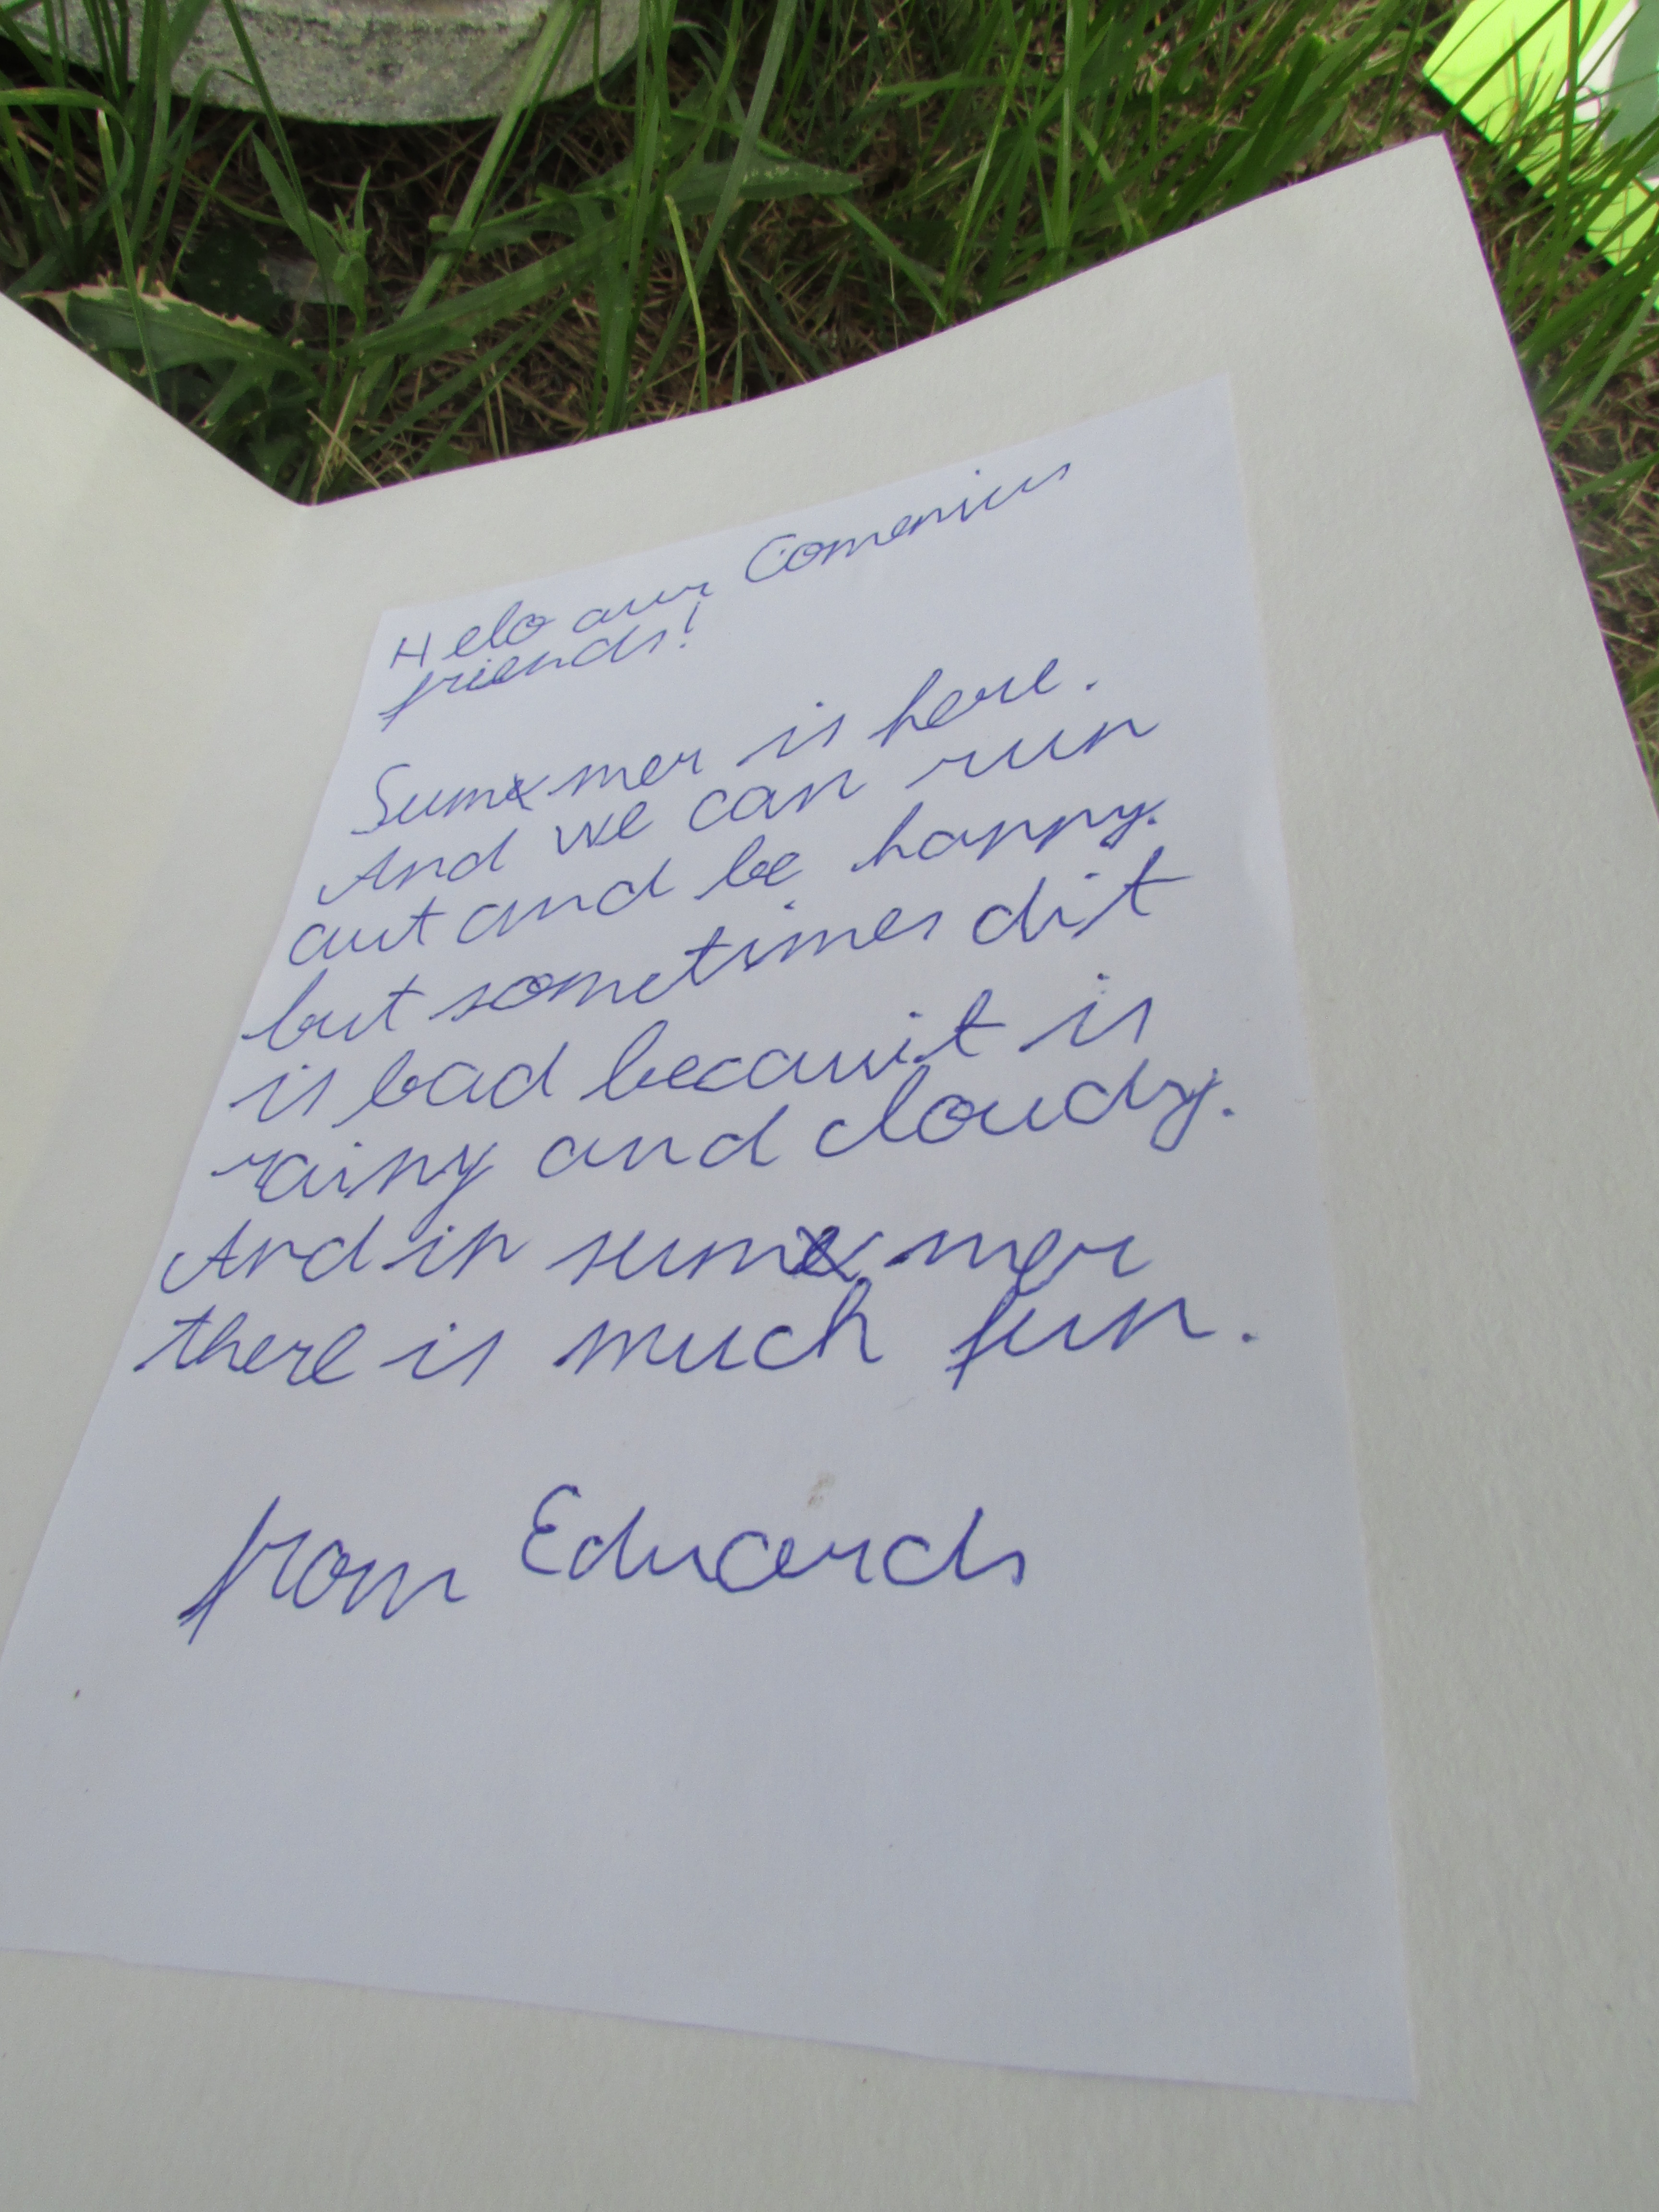 Helo aur Comenius
friends!
Summer is here.
And we can run
aut and be happy.
but sometimes dit
is bad becaus it is
rainy and cloudy.
And in summer
there is much fun.
from Eduards